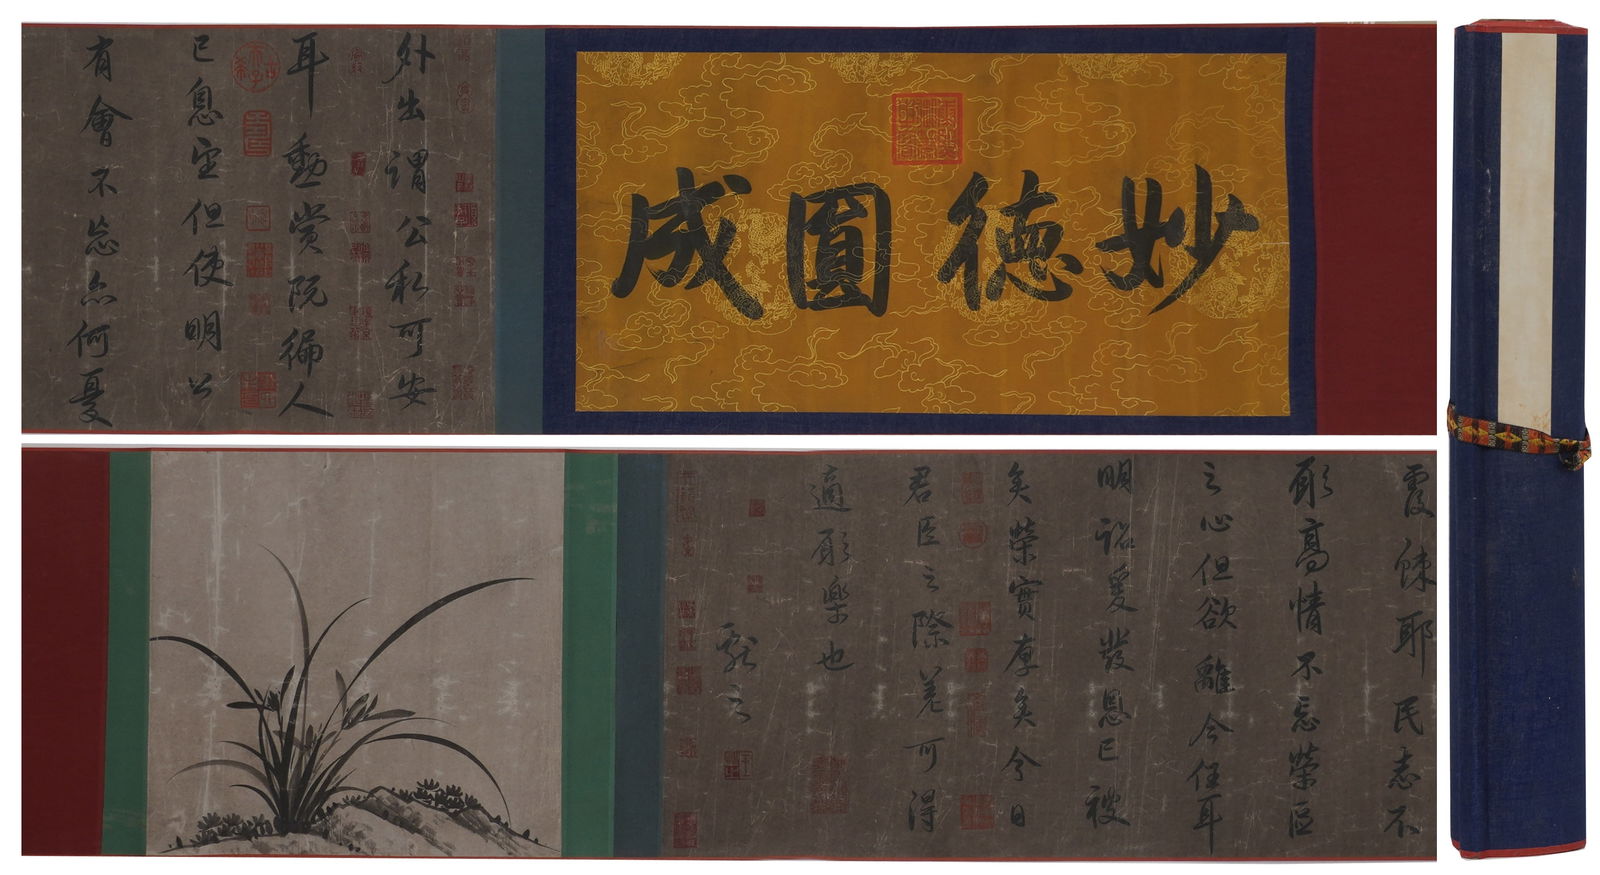 妙徳圓成
外出謂公私可安
耳勲賞阮徧人
已息但使明公
有會不忘亦何憂
霞餗耶民志不
願高情不忘榮區
之心但欲離今任耳
明詔爰發恩已被
矣榮實厚矣今日
君臣之際羌可得
適願樂也
獻之